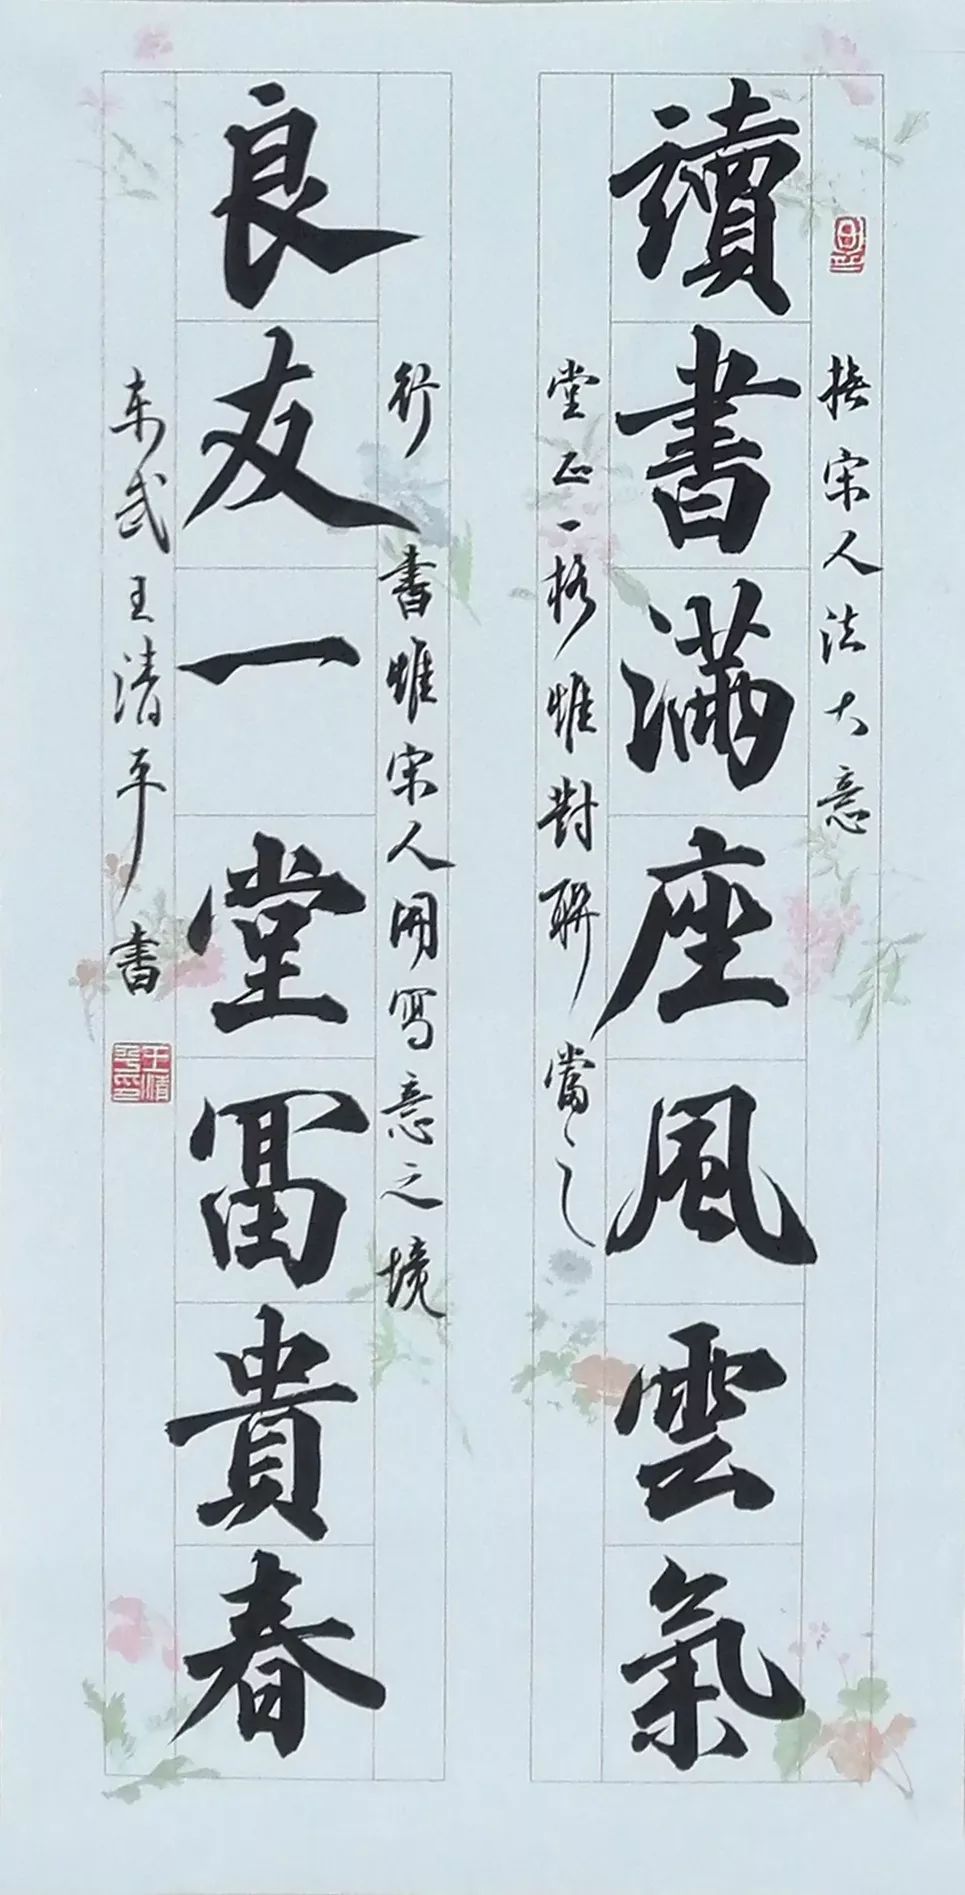 撫宋人法大意
讀書滿座風雲氣
堂正一格惟對聯當之
行書惟宋人開寫意之境
良友一堂冨貴春
东武王清平書
王清平印